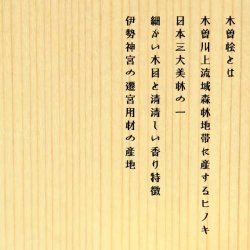 木曽桧とは
木曽川上流域森林地帯に産するヒノキ
日本三大美林の一
細かい木目と清清しい香り特徴
伊勢神宮の遷宮用材の産地